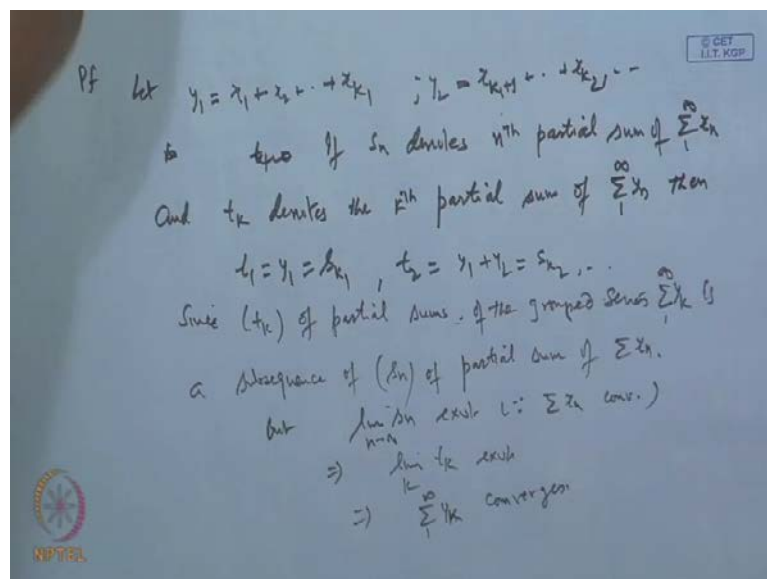 © CET
I.I.T. KGP
Pf Let y₁ = x₁ + x₂ + ·· + x_{k₁} ; y₂ = x_{k₁+1} + ·· + x_{k₂}, ··
If Sn denotes nᵗʰ partial sum of ∑₁^∞ xn
And tk denotes the kᵗʰ partial sum of ∑₁^∞ yn then
t₁ = y₁ = S_{k₁} , t₂ = y₁ + y₂ = S_{k₂} , ··
Since (tk) of partial sums of the grouped series ∑₁^∞ yk is
a subsequence of (Sn) of partial sum of ∑ xn.
but lim_{n→∞} Sn exists (∵ ∑ xn conv.)
⇒ lim_k tk exists
⇒ ∑₁^∞ yk converges.
NPTEL